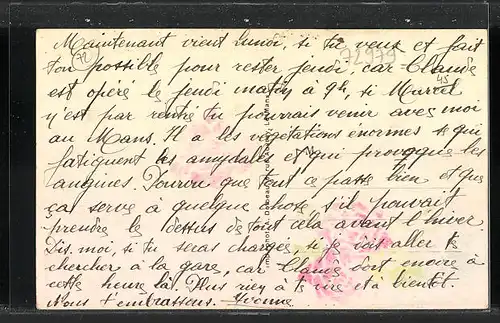 Maintenant vient lundi, si tu veux et fait
ton possible pour rester jeudi, car Claude
est opéré le jeudi matin à 9h, si Marcel
n'est par rentré tu pourrais venir avec moi
au Mans. Il a les végétations énormes qui
fatiguent les amygdales et qui provoque les
angines. Pourvu que tout ce passe bien et que
ça serve à quelque chose, s'il pouvait
prendre le dessus de tout cela avant l'hiver.
Dis-moi, si tu seras chargée, si je dois aller te
chercher à la gare, car Claude dort encore à
cette heure là. Plus rien à te dire et à bientôt.
Nous t'embrassons. Yvonne
72
72979
45